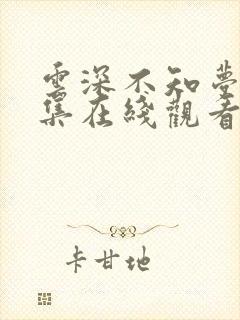 雲深不知夢
集在綫觀看
卡甘地